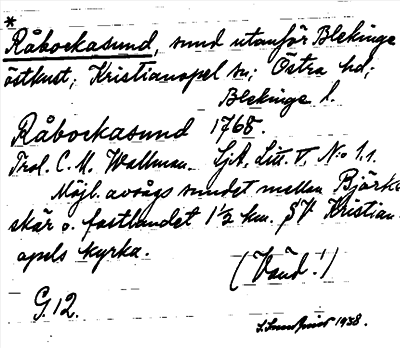 *
Råbockasund, sund utanför Blekinge
östkust; Kristianopel sn; Östra hd;
Blekinge l.
Råbockasund 1768.
Trol. C. M. Wallman. Sjk. Litt. T. N:o 1.1.
Möjl. avsågs sundet mellan Björke
skär o. fastlandet 1½ km. SV Kristian
opels kyrka.
(Vänd!)
G.12.
1938.